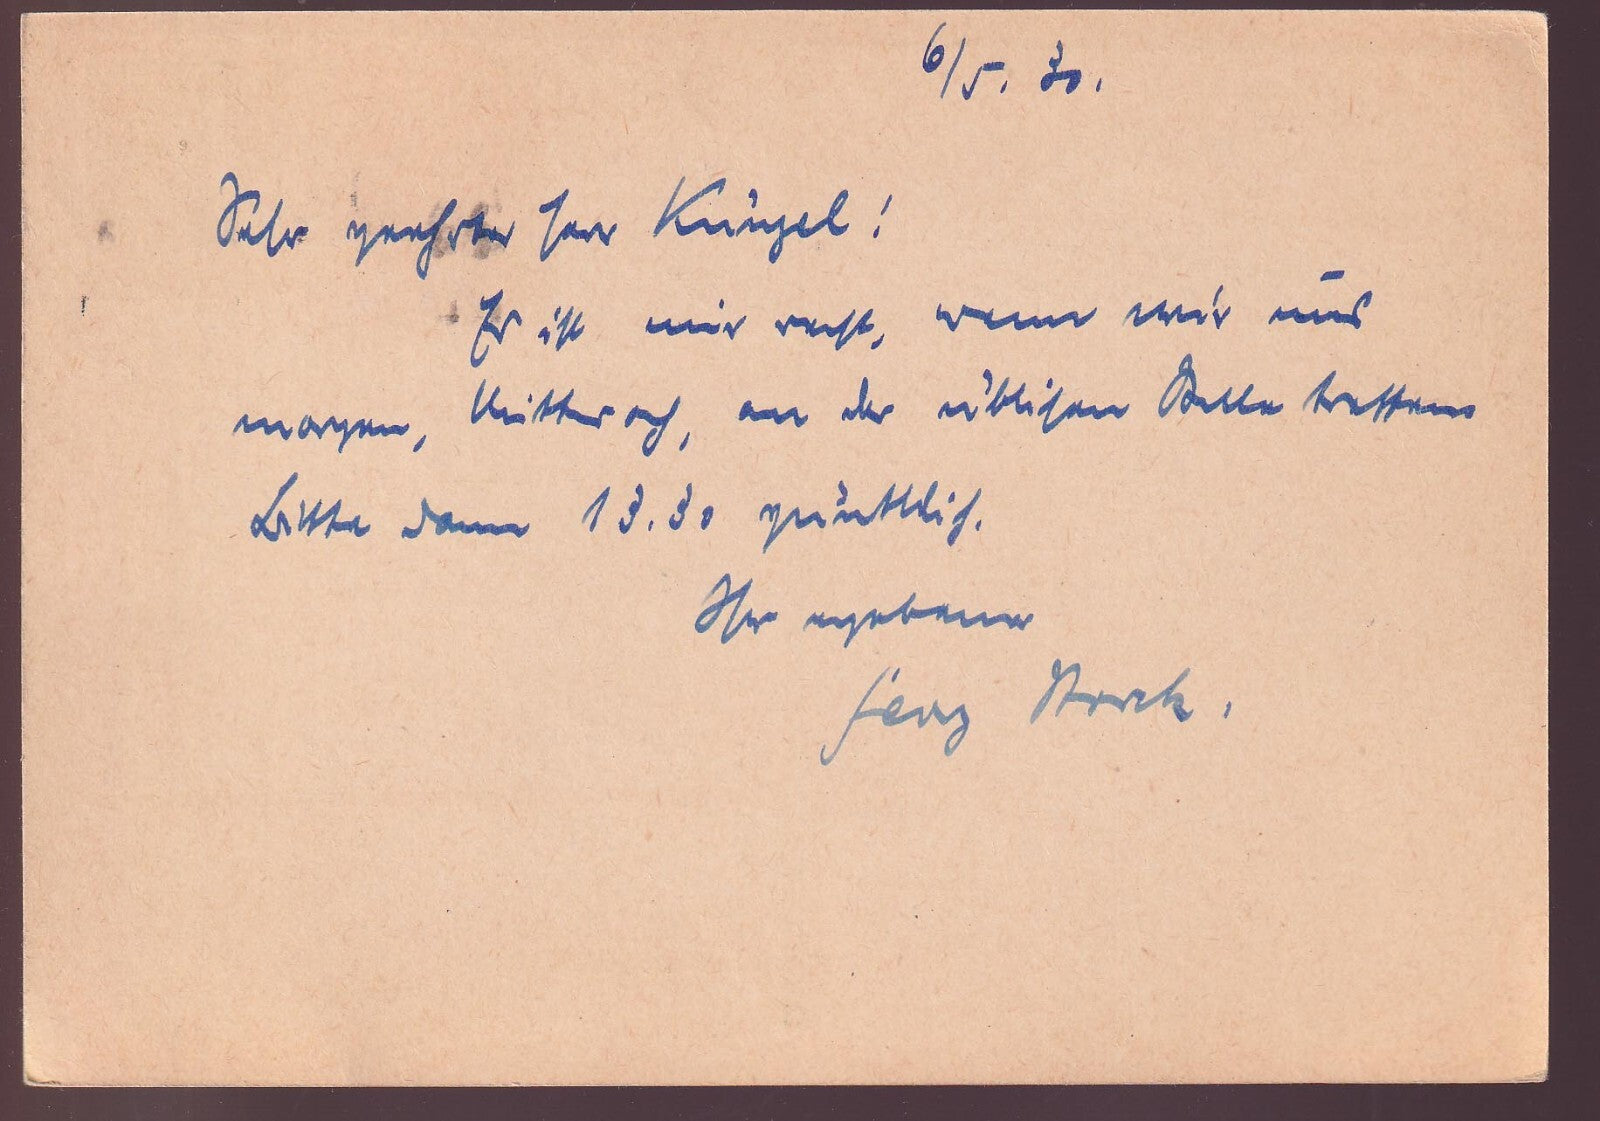 6/5. 30.
Sehr geehrter Herr Küngel!
Es ist mir recht, wenn wir uns
morgen, Mittwoch, an der üblichen Stelle treffen.
Bitte dann 13.30 pünktlich.
Ihr ergebener
Georg